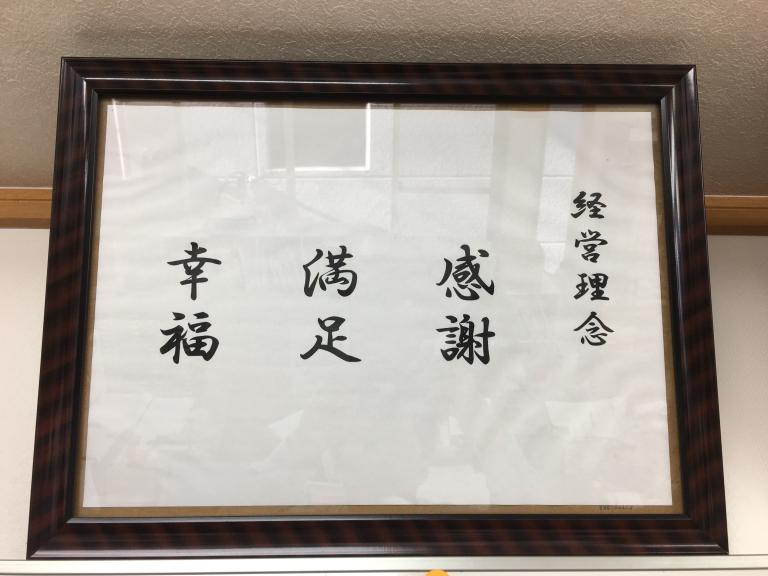 経営理念
感謝
満足
幸福